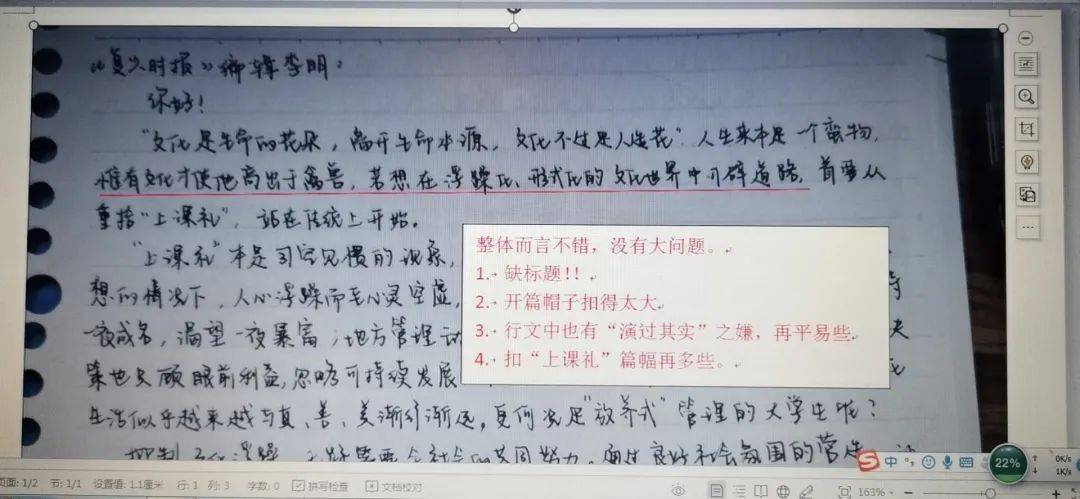 《复兴时报》编辑李明：
你好！
"文化是生命的花朵，离开生命本源，文化不过是人造花"人生来本是一个蛮物，
惟有文化才使他高出于禽兽，若想在浮躁化、形式化的文化世界中开辟道路，首要从
重拾"上课礼"，站在传统上开始。
"上课礼"本是司空见惯的现象，
想的情况下，人心浮躁而至心灵空虚，
一夜成名，渴望一夜暴富；地方管理
策也只顾眼前利益，忽略可持续发展
生活似乎越来越与真、善、美渐行渐远，更何况是"放养式"管理的大学生呢？
整体而言不错，没有大问题。
1. 缺标题!!
2. 开篇帽子扣得太大
3. 行文中也有"演过其实"之嫌，再平易些
4. 扣"上课礼"篇幅再多些。
中
22%
0K/s
1K/s
页面: 1/2 节: 1/1 设置值: 1.1厘米 行: 1 列: 3 字数: 0 拼写检查 文档校对
163%